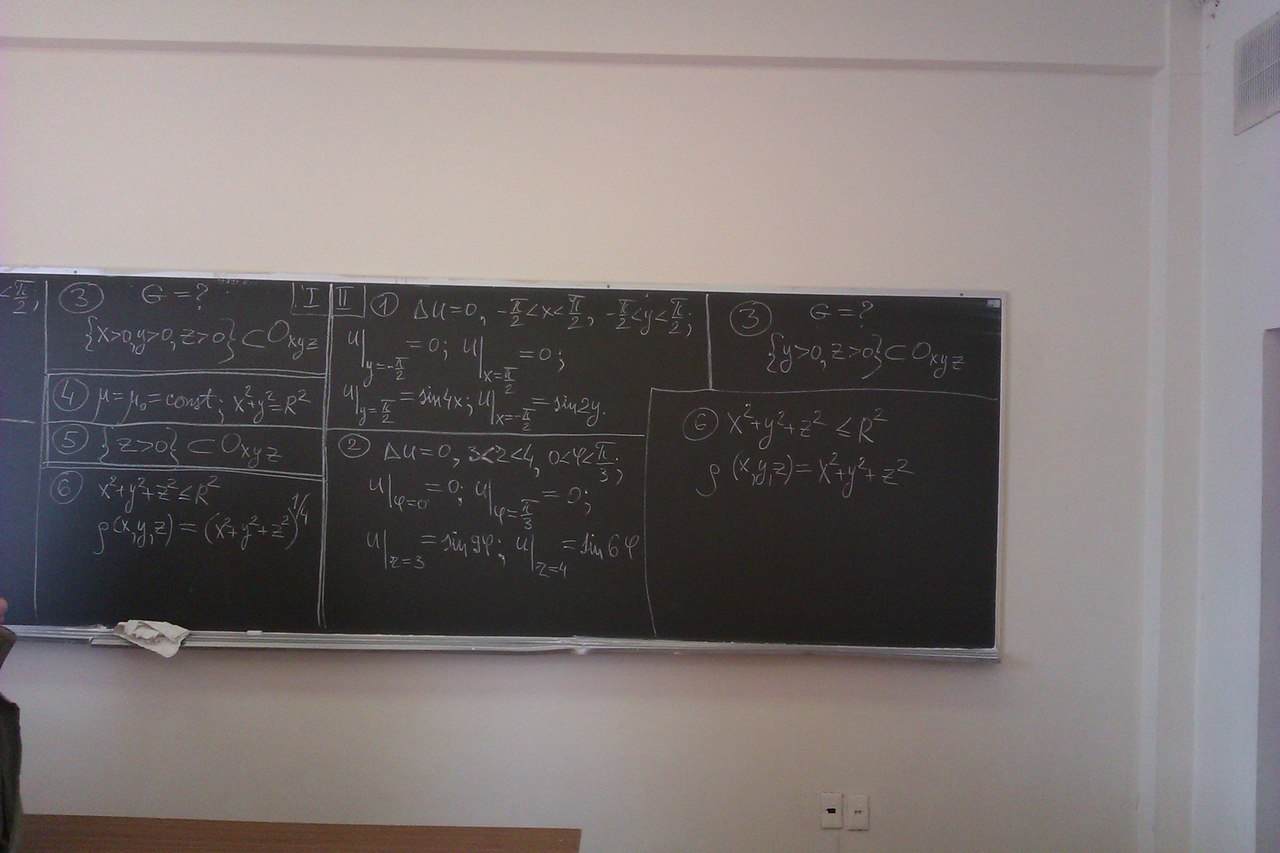 < π/2 ;
③ G = ?
{x>0, y>0, z>0} ⊂ Oxyz
I
④ μ = μ₀ = const; x²+y² = R²
⑤ {z>0} ⊂ Oxyz
⑥ x²+y²+z² ≤ R²
ρ(x,y,z) = (x²+y²+z²)^{1/4}
II
① Δu=0, -π/2<x<π/2, -π/2<y<π/2;
u|_{y=-π/2} = 0; u|_{x=π/2} = 0;
u|_{y=π/2} = sin4x; u|_{x=-π/2} = sin2y.
② Δu=0, 3<r<4, 0<φ<π/3;
u|_{φ=0} = 0; u|_{φ=π/3} = 0;
u|_{r=3} = sin9φ; u|_{r=4} = sin6φ
③ G = ?
{y>0, z>0} ⊂ Oxyz
⑥ x²+y²+z² ≤ R²
ρ(x,y,z) = x²+y²+z²